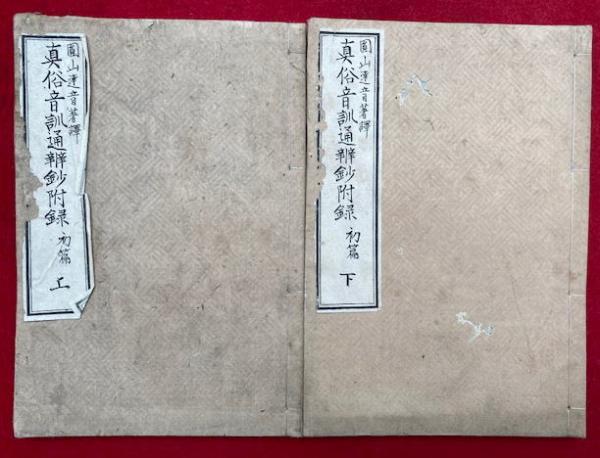 圓山達音著譯
真俗音訓通辨鈔附録 初篇 上
圓山達音著譯
真俗音訓通辨鈔附録 初篇 下